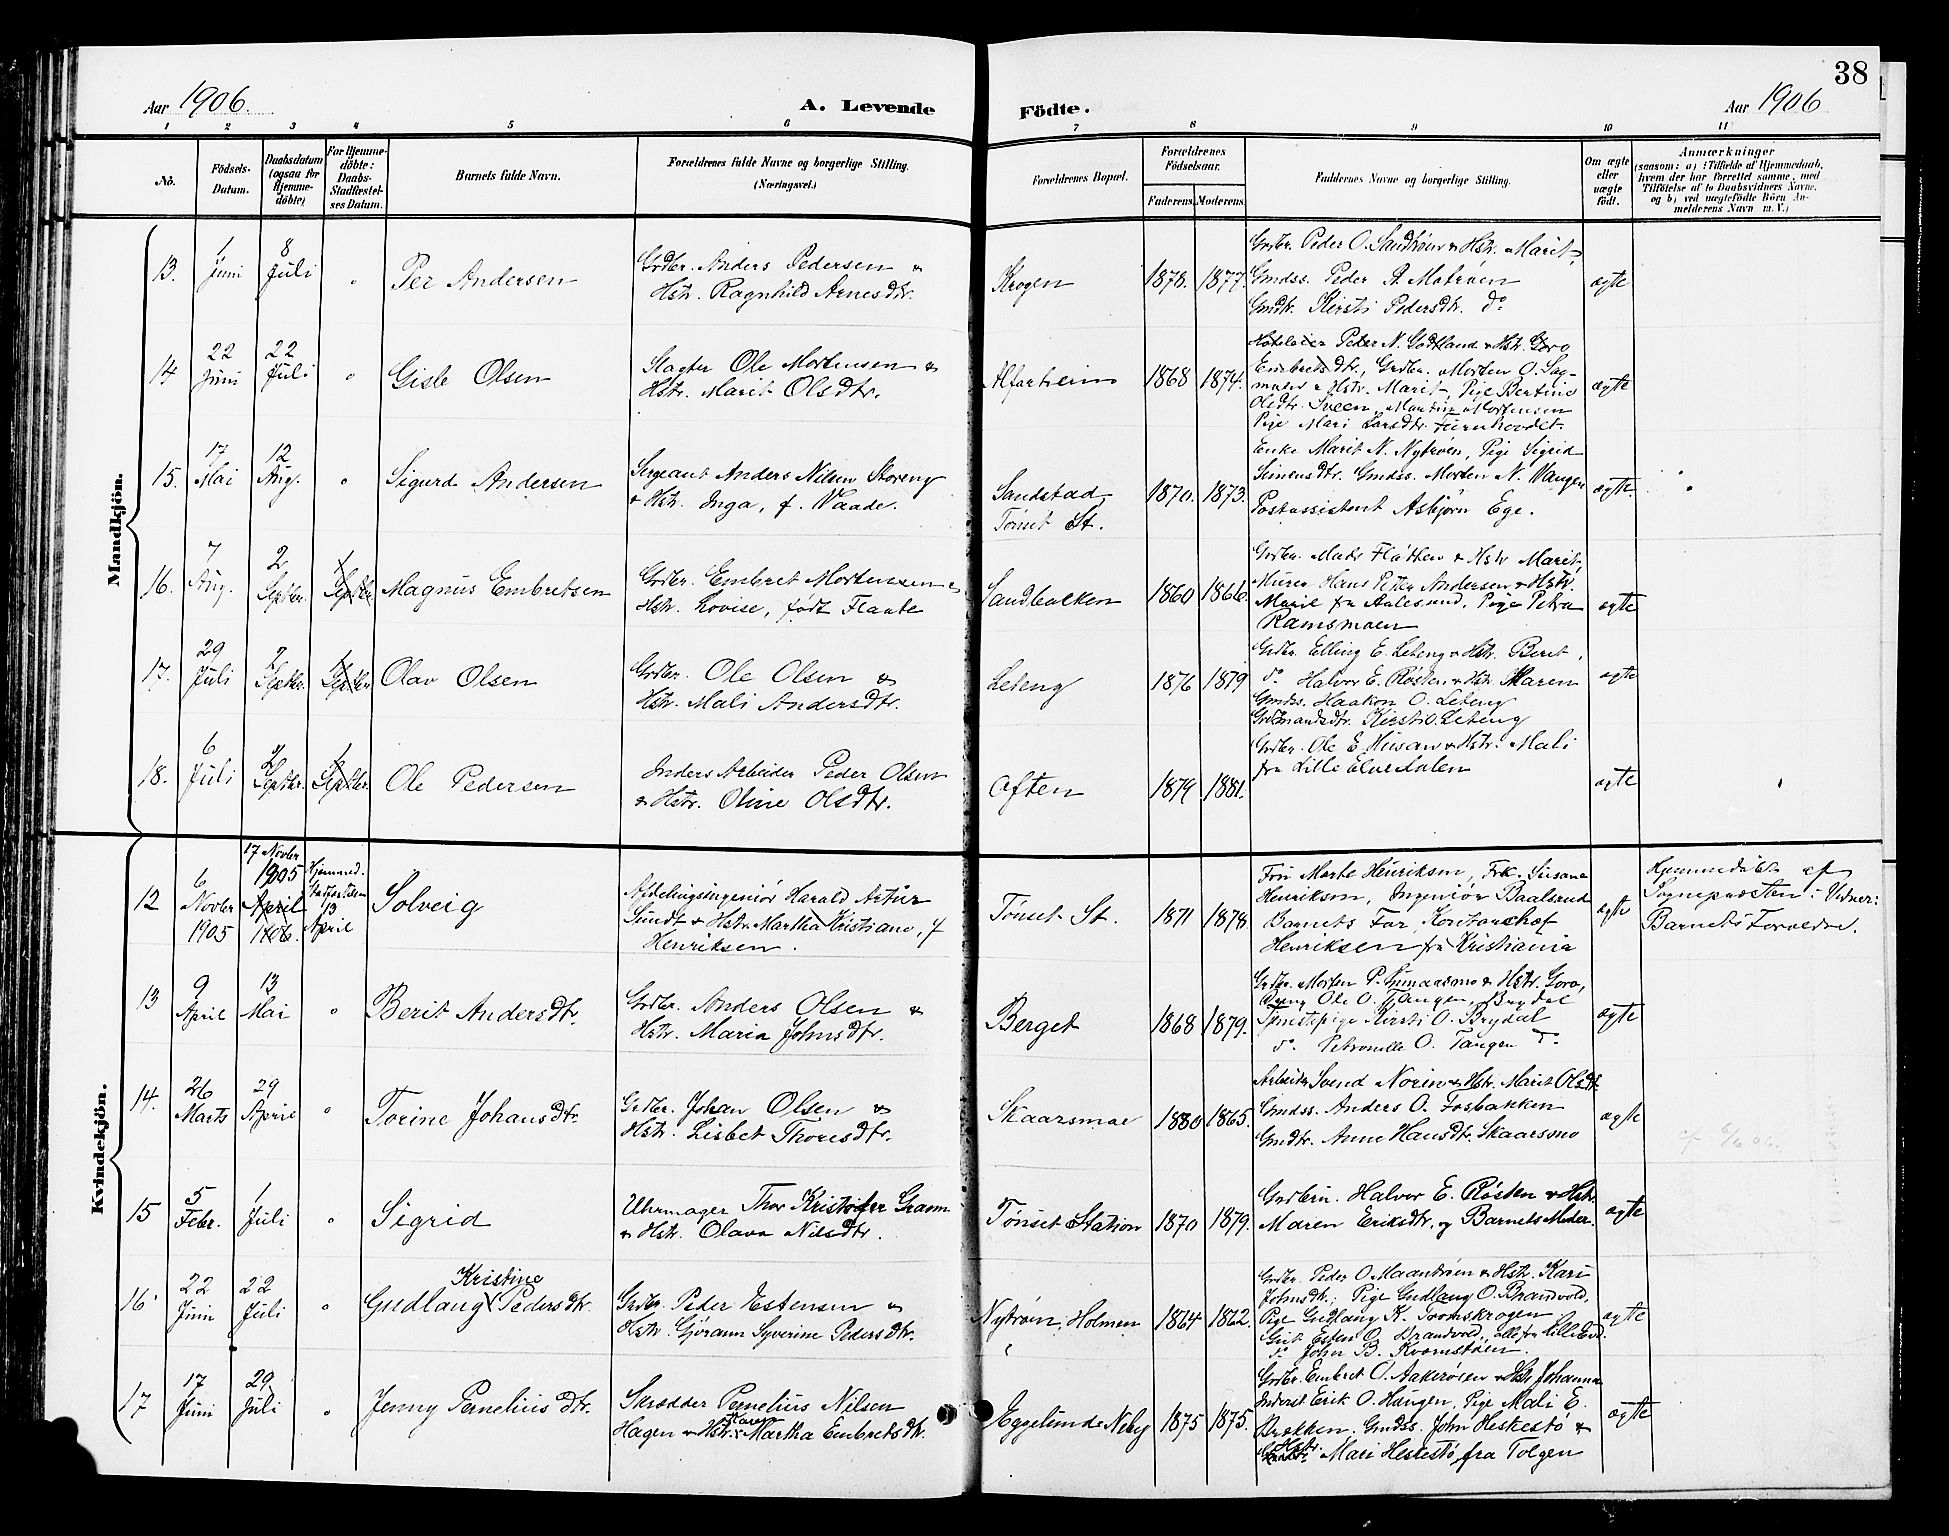 38
Aar 1906.
A. Levende
Födte.
Aar 1906
1 2 3 4 5 6 7 8 9 10 11
No.
Födsels-
Datum.
Daabsdatum
(ogsaa for
Hjemme-
döbte)
For Hjemme-
döbte:
Daabs-
Stadfæstel-
ses Datum.
Barnets fulde Navn.
Forældrenes fulde Navne og borgerlige Stilling.
(Næringsvei.)
Forældrenes Bopæl.
Forældrenes
Födselsaar.
Faderens. Moderens.
Faddernes Navne og borgerlige Stilling.
Om ægte
eller
uægte
født.
Anmærkninger
(saasom: a) i Tilfælde af Hjemmedaab,
hvem der har forrettet samme, med
Tilföielse af to Daabsvidners Navne,
og b) ved uægtefödte Börn An-
melderens Navn m. V.)
Mandkjön.
13. 1 Juni
8 Juli
"
Per Andersen
Grdbr. Anders Pedersen &
Hstr. Ragnhild Arnesdtr.
Krogen
1878. 1877.
Grdbr. Peder O. Sandtrøen & Hstr. Marit,
Gmdss. Peder A. Motrøen
Gmdtr. Kirsti Pedersdtr. do
ægte
14 22 Juni
22 Juli
"
Gisle Olsen
Slagter Ole Mortensen &
Hstr. Marit Olsdtr.
Alfarheim
1868 1874.
Hoteleier Peder N. Godtland & Hstr. Goro
Embretsdtr., Grdbr. Morten O. Sag-
moen & Hstr. Marit, Pige Bertine
Olsdtr. Sveen, Martin Mortensen
Pige Mari Larsdtr. Furuhovdet.
ægte
15. 17 Mai
12 Aug.
"
Sigurd Andersen
Sergeant Anders Nilsen Storeng
& Hstr. Inga, f. Waade.
Sandstad
Tønset St.
1870. 1873.
Enke Marit N. Nytrøen, Pige Sigrid
Simensdtr. Gmdss. Morten N. Vangen
Postassistent Asbjørn Ege.
ægte
16. 7 Aug.
2 Septbr.
1 Septbr.
Magnus Embretsen
Grdbr. Embret Mortensen &
Hstr. Lovise, født Flaate
Sandbakken
1860 1866.
Grdbr. Mads Fløtten & Hstr Marit,
Murer Hans Peter Andersen & Hstr.
Marie fra Aalesund, Pige Petra
Ramsmoen
ægte
17. 29 Juli
2 Septbr.
1 Septbr.
Olav Olsen
Grdbr. Ole Olsen &
Hstr. Mali Andersdtr.
Leteng
1876 1879
Grdbr. Elling E. Leteng & Hstr. Beret,
do Halvor E. Røsten & Hstr. Maren
Gmdss. Haakon O. Leteng
Grdmandsdtr. Kirsti O. Leteng
ægte
18. 6 Juli
2 Septbr.
1 Septbr.
Ole Pedersen
Inders Arbeider Peder Olsen
& Hstr. Oline Olsdtr.
Aften
1879 1881.
Grdbr. Ole E. Husan & Hstr. Mali
fra Lille Elvedalen
ægte
Kvindekjön.
12 6 Novbr 1905
17 Novbr
1905
April
1906.
Hjemmed.
Stadfæstelsen
13
April
Solveig
Afdelingsingeniør Harald Artur
Sundt & Hstr. Martha Kristiane, f.
Henriksen.
Tønset St.
1871 1878.
Fru Marte Henriksen, Frk. Susana
Henriksen, Ingeniør Baalsrud
Barnets Far, Kontorchef
Henriksen fra Kristiania
ægte
Hjemmedøbt af
Sognepresten: Vidner:
Barnets Forældre.
13 9 April
13 Mai
"
Berit Andersdtr.
Grdbr. Anders Olsen &
Hstr. Maria Johnsdtr.
Berget
1868 1879.
Grdbr. Morten P. Gunnarsmo & Hstr. Goro,
Ung Ole O. Tangen, Brydal
Tjenestepige Kirsti O. Brydal
do. Petronelle O. Tangen do.
ægte
14. 26 Marts
29 April
"
Torine Johansdtr.
Grdbr. Johan Olsen &
Hstr. Lisbet Thoresdtr.
Skaarsmoe
1880 1865.
Arbeider Svend Noren & Hstr. Marit Olsdtr.
Gmdss. Anders O. Fosbakken
Gmdtr. Anne Hansdtr. Skaarsmo
ægte
15 5 Febr.
1 Juli
"
Sigrid
Uhrmager Thor Kristofer Gramm
& Hstr. Olava Nilsdtr.
Tønset Station
1870 1879.
Grdbrn. Halvor E. Røsten & Hstr.
Maren Eriksdtr. og Barnets Moder.
ægte
16. 22 Juni
22 Juli
"
Kristine
Gudlaug Pedersdtr.
Grdbr. Peder Estensen &
Hstr. Gjørann Syverine Pedersdtr.
Nytrøen, Holmen
1864 1862.
Grdbr. Peder O. Maantrøen & Hstr. Kari
Johnsdtr., Pige Gudlaug O. Brandvold,
Pige Gudlaug K. Toomskrogen
Gut Esten O. Brandvold, alle fra Lille Elvd.
do John B. Kvornstøen.
ægte
17 17 Juni
29 Juli
"
Jenny Perneliusdtr.
Skrædder Pernelius Nilsen
Hagen & Hstr. Karen Martha Embretsdtr.
Eggelunde Neby
1875 1875.
Grdbr. Embret O. Aakerøien & Hstr Johanna
Inderst Erik O. Haugen, Pige Mali E.
Brækken. Gmdss. John Heskestø &
Hstr. Mari Heskestø, fra Tolgen
ægte